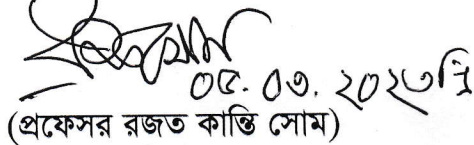 ০৫.০৩.২০২৩খ্রি
(প্রফেসর রজত কান্তি সোম)